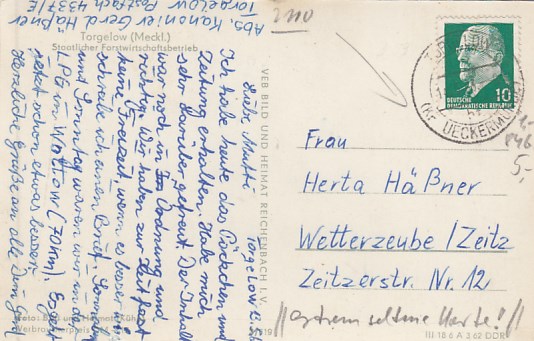 Abs. Kanonier Gerd Häßner
Torgelow Postfach 4337/E
Torgelow (Meckl.)
Staatlicher Forstwirtschaftsbetrieb
Torgelow
Liebe Mutti!
Ich habe heute das Päckchen und
Zeitung erhalten. Habe mich
sehr darüber gefreut. Der Inhalt
war noch in Ordnung und
Wir haben zur Zeit fast
keine Freizeit, wenn es besser
schreibe ich einen Brief.
und Sonntag waren wir in der
LPG in Wollow (70 km). Es geht
jetzt schon etwas besser.
Herzliche Grüße an alle Dein Gerd
Foto: Bild und Heimat
Verbraucherpreis
VEB BILD UND HEIMAT REICHENBACH I. V.
TORGELOW
(KR UECKERMÜNDE)
10
DEUTSCHE
DEMOKRATISCHE REPUBLIK
5,-
Frau
Herta Häßner
Wetterzeube/Zeitz
Zeitzerstr. Nr. 12
extrem seltene Karte!
III 18 6 A 3 62 DDR